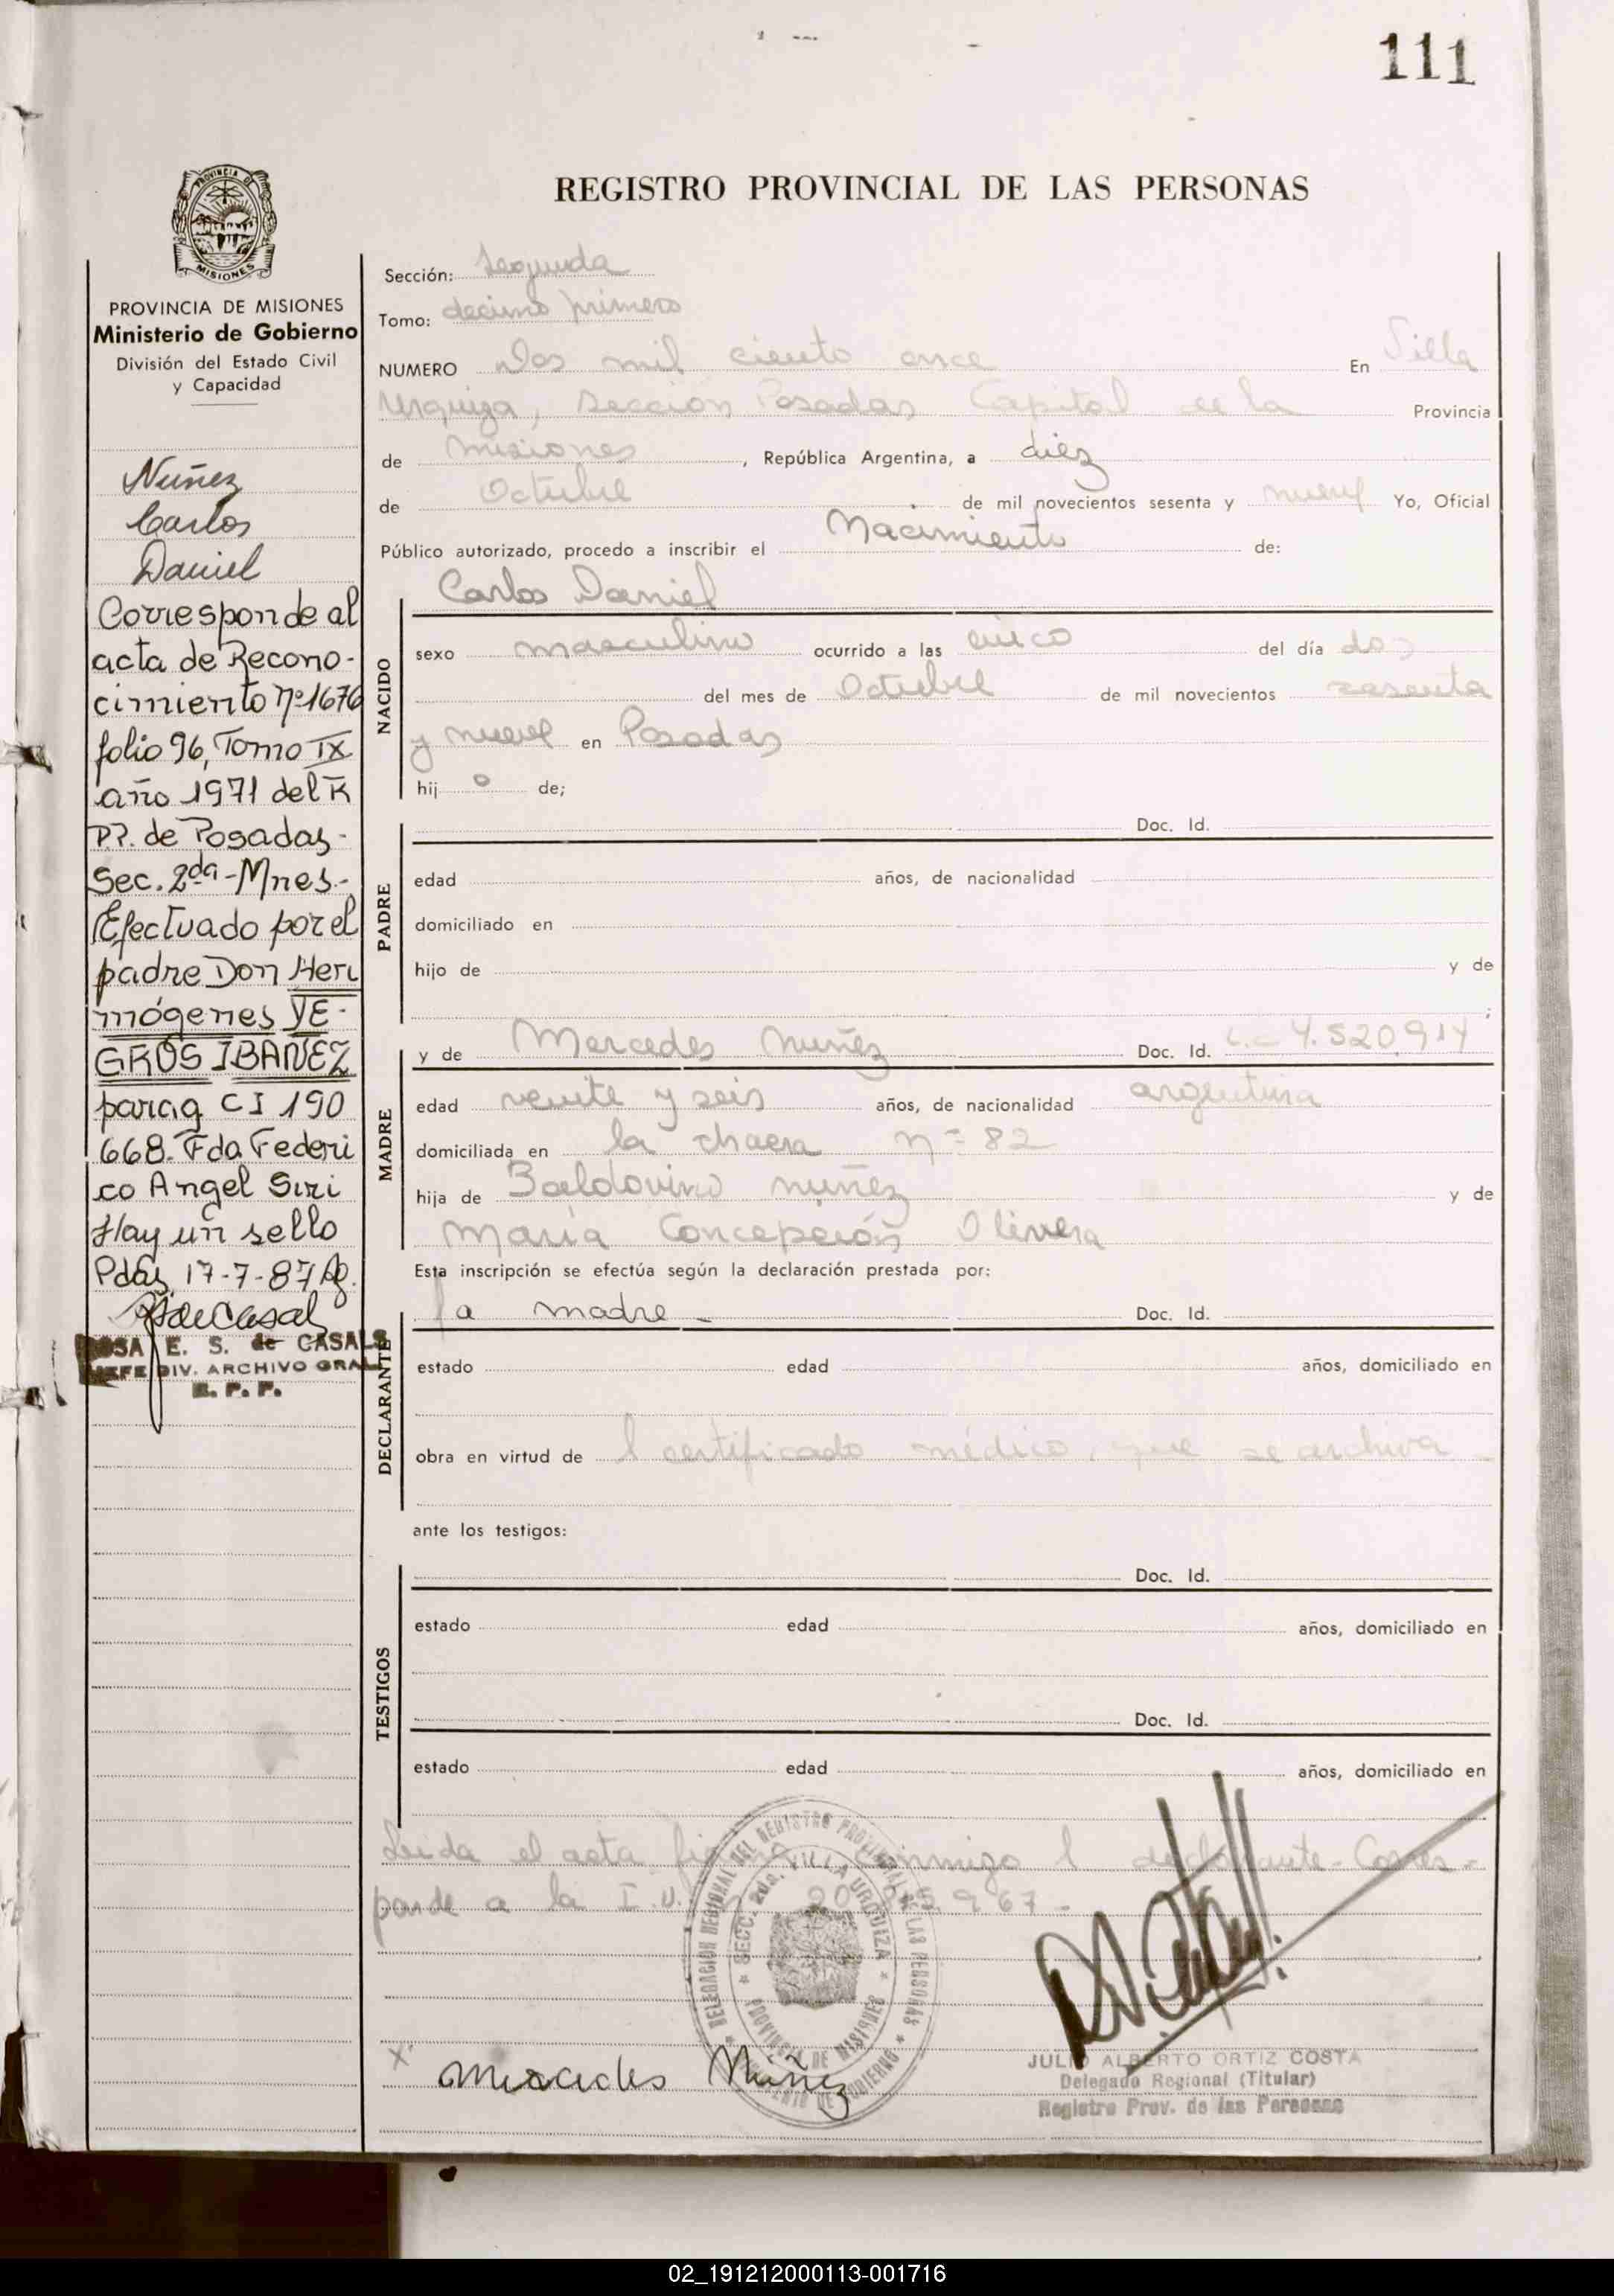 111
REGISTRO PROVINCIAL DE LAS PERSONAS
PROVINCIA DE
MISIONES
PROVINCIA DE MISIONES
Ministerio de Gobierno
División del Estado Civil
y Capacidad
Nuñez
Carlos
Daniel
Corresponde al
acta de Recono-
cimiento Nº 1676
folio 96, Tomo IX
año 1971 del R
PP. de Posadas-
Sec. 2da - Mnes.-
Efectuado por el
padre Don Her
mógenes YE-
GROS IBAÑEZ
parag CI 190
668. Fda Federi
co Angel Siri
Hay un sello
Pdas, 17-7-87
ROSA E. S. de CASALS
JEFE DIV. ARCHIVO GRAL
R. P. P.
Sección: Segunda
Tomo: decimo primero
NUMERO Dos mil ciento once En Villa
Urquiza, Sección Posadas Capital de la Provincia
de Misiones, República Argentina, a diez
de Octubre de mil novecientos sesenta y nueve Yo, Oficial
Público autorizado, procedo a inscribir el Nacimiento de:
NACIDO
Carlos Daniel
sexo masculino ocurrido a las cinco del día dos
del mes de Octubre de mil novecientos sesenta
y nueve en Posadas
hijo de;
PADRE
Doc. Id.
edad años, de nacionalidad
domiciliado en
hijo de y de
;
MADRE
y de Mercedes Nuñez Doc. Id. L.- 4.520.914
edad veinte y seis años, de nacionalidad argentina
domiciliada en la chacra nº 82
hija de Baldovino nuñez y de
María Concepción Olivera
Esta inscripción se efectúa según la declaración prestada por:
DECLARANTE
la madre - Doc. Id.
estado edad años, domiciliado en
obra en virtud de l certificado médico, que se archiva -
ante los testigos:
TESTIGOS
Doc. Id.
estado edad años, domiciliado en
Doc. Id.
estado edad años, domiciliado en
Leida el acta conmigo l declarante- Corres-
ponde a la I.U.
DELEGACION REGIONAL DEL REGISTRO PROVINCIAL DE LAS PERSONAS
SECC. 2da. VILLA URQUIZA
PROVINCIA DE MISIONES
x Mercedes Núñez
JULIO ALBERTO ORTIZ COSTA
Delegado Regional (Titular)
Registro Prov. de las Personas
02_191212000113-001716